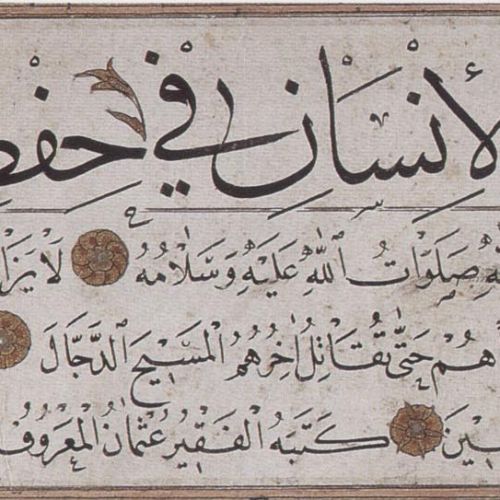 الإنسان في حفظ
صَلَوَاتُ اللّٰهِ عَلَيْهِ وَسَلَامُهُ لَا يَزَا
هُمْ حَتَّى يُقَاتِلَ آخِرُهُمُ الْمَسِيحَ الدَّجَّالَ
كَتَبَهُ الْفَقِيرُ عُثْمَانُ الْمَعْرُوفُ